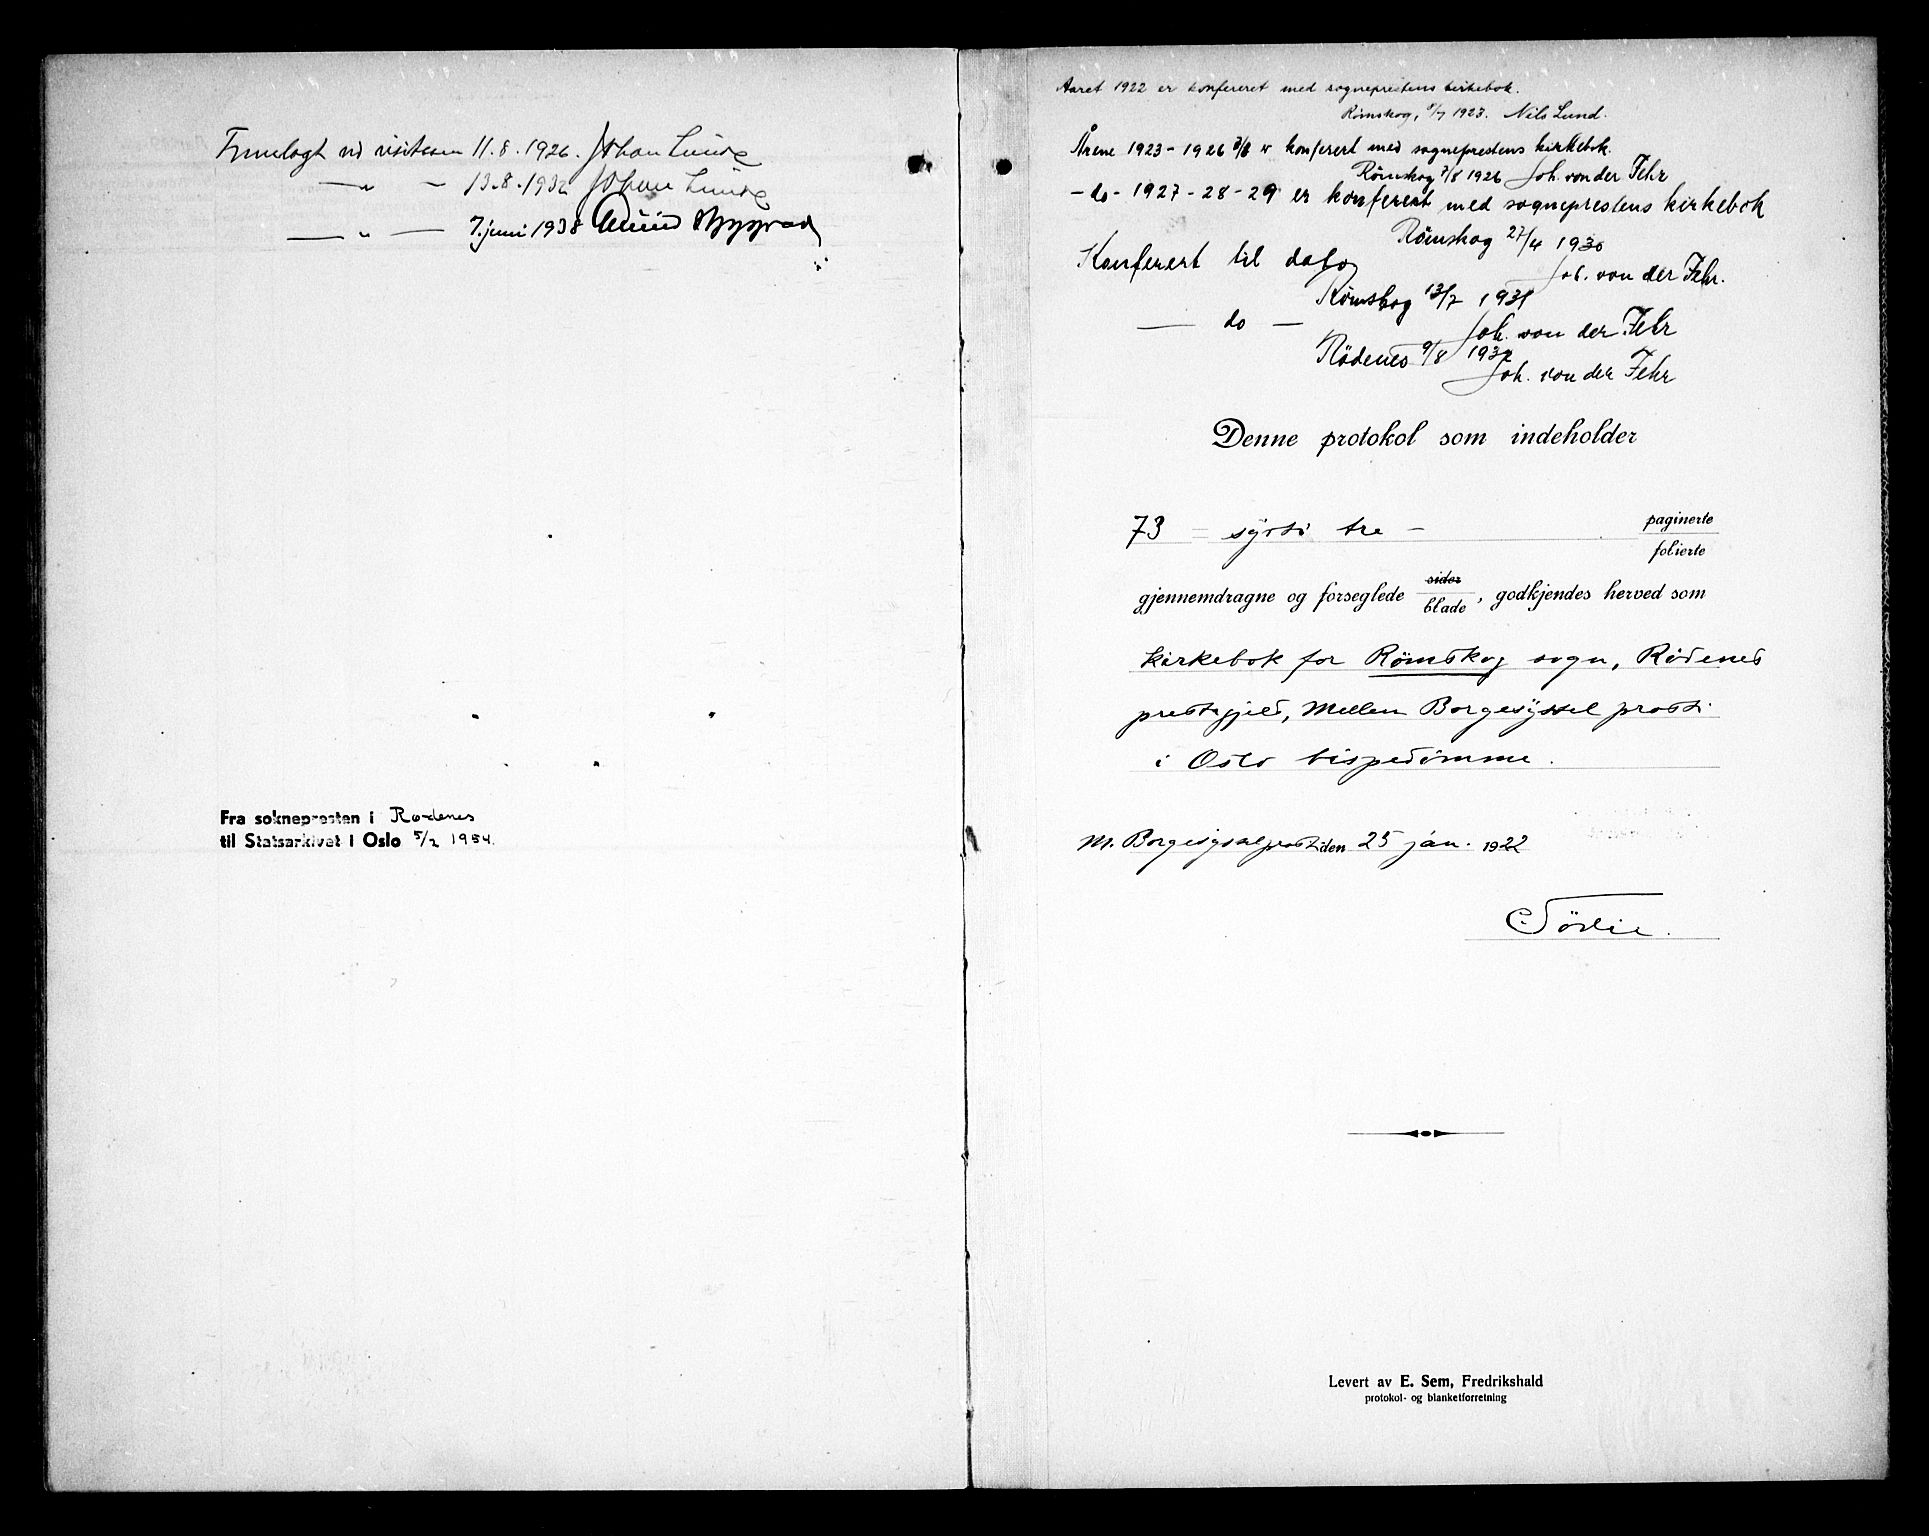 Fremlagt ved visitasen 11.8.1926. Johan Lunde
— " — 13.8.1932 Johan Lunde
— " — 7. juni 1938
Fra soknepresten i Rødenes
til Statsarkivet i Oslo 5/2 1954.
Aaret 1922 er konfereret med sogneprestens kirkebok.
Rømskog, 1923. Nils Lund.
Årene 1923 - 1926 er konferert med sogneprestens kirkebok.
Rømskog 7/8 1926 Joh. von der Fehr
- do - 1927 - 28 - 29 er konferert med sogneprestens kirkebok
Rømskog 27/4 1930
Joh. von der Fehr.
Konferert til dato
Rømskog 13/7 1931
Joh. von der Fehr
— do —
Rødenes 9/8 1932
Joh. von der Fehr
Denne protokol som indeholder
73 = sytti tre -
paginerte
folierte
gjennemdragne og forseglede sider / blade, godkjendes herved som
kirkebok for Römskog sogn, Rödenes
prestegjeld, Mellem Borgesyssel prosti
i Oslo bispedömme.
M. Borgesyssel prosti den 25 jan. 1922
Levert av E. Sem, Fredrikshald
protokol- og blanketforretning